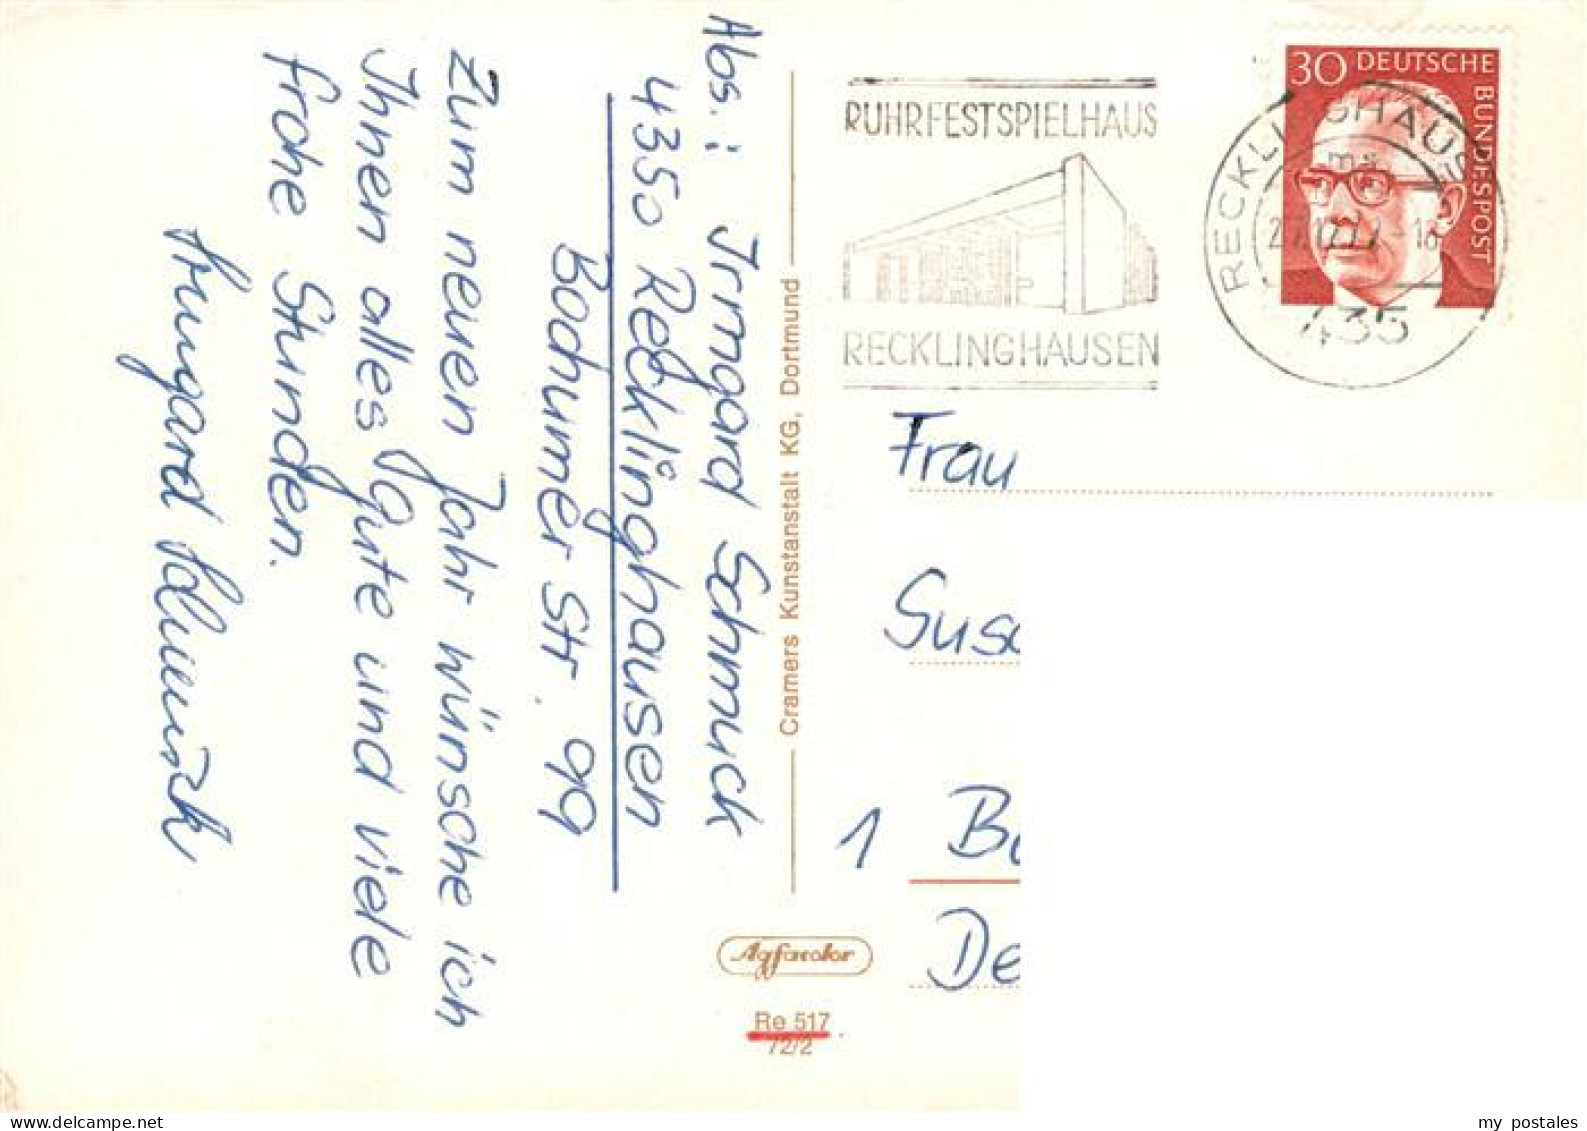 Abs.: Irmgard Schmuck
4350 Recklinghausen
Bochumer Str. 99
Zum neuen Jahr wünsche ich
Ihnen alles Gute und viele
frohe Stunden.
Irmgard Schmuck
Cramers Kunstanstalt KG, Dortmund
RUHRFESTSPIELHAUS
RECKLINGHAUSEN
30 DEUTSCHE
BUNDESPOST
RECKLINGHAUSEN
435
Frau
Sus
1 B
De
Agfacolor
Re 517
72/2
my postales